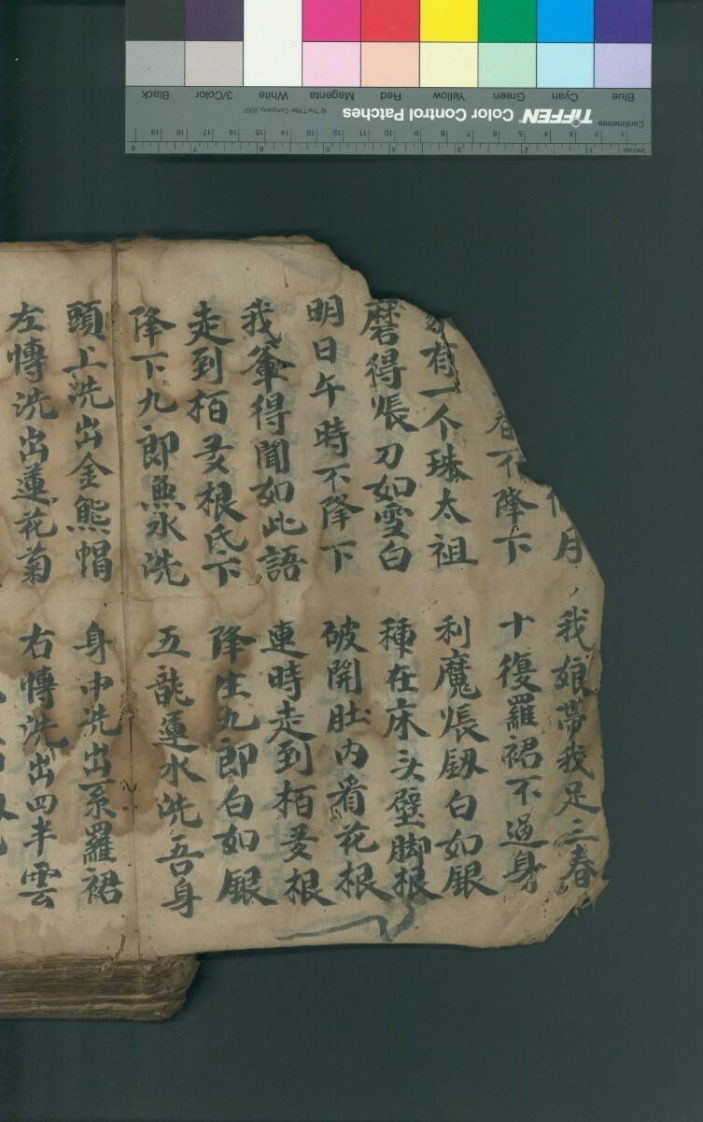 月 我娘帶我足三春
春不降下 十復羅裙不過身
有一个珠太祖 利魔悵釼白如銀
磨得悵刀如雪白 種在床头壁脚根
明日午時不降下 破開肚内看花根
我軰得聞如此語 連時走到栢叐根
走到栢叐根氏下 降生九郎白如銀
降下九郎無水洗 五龍運水洗吾身
頭上洗出金熊帽 身中洗出系羅裙
左轉洗出蓮花菊 右轉洗出四半雲
TIFFEN Color Control Patches
© The Tiffen Company, 2007
Centimetres
Inches
Blue Cyan Green Yellow Red Magenta White 3/Color Black